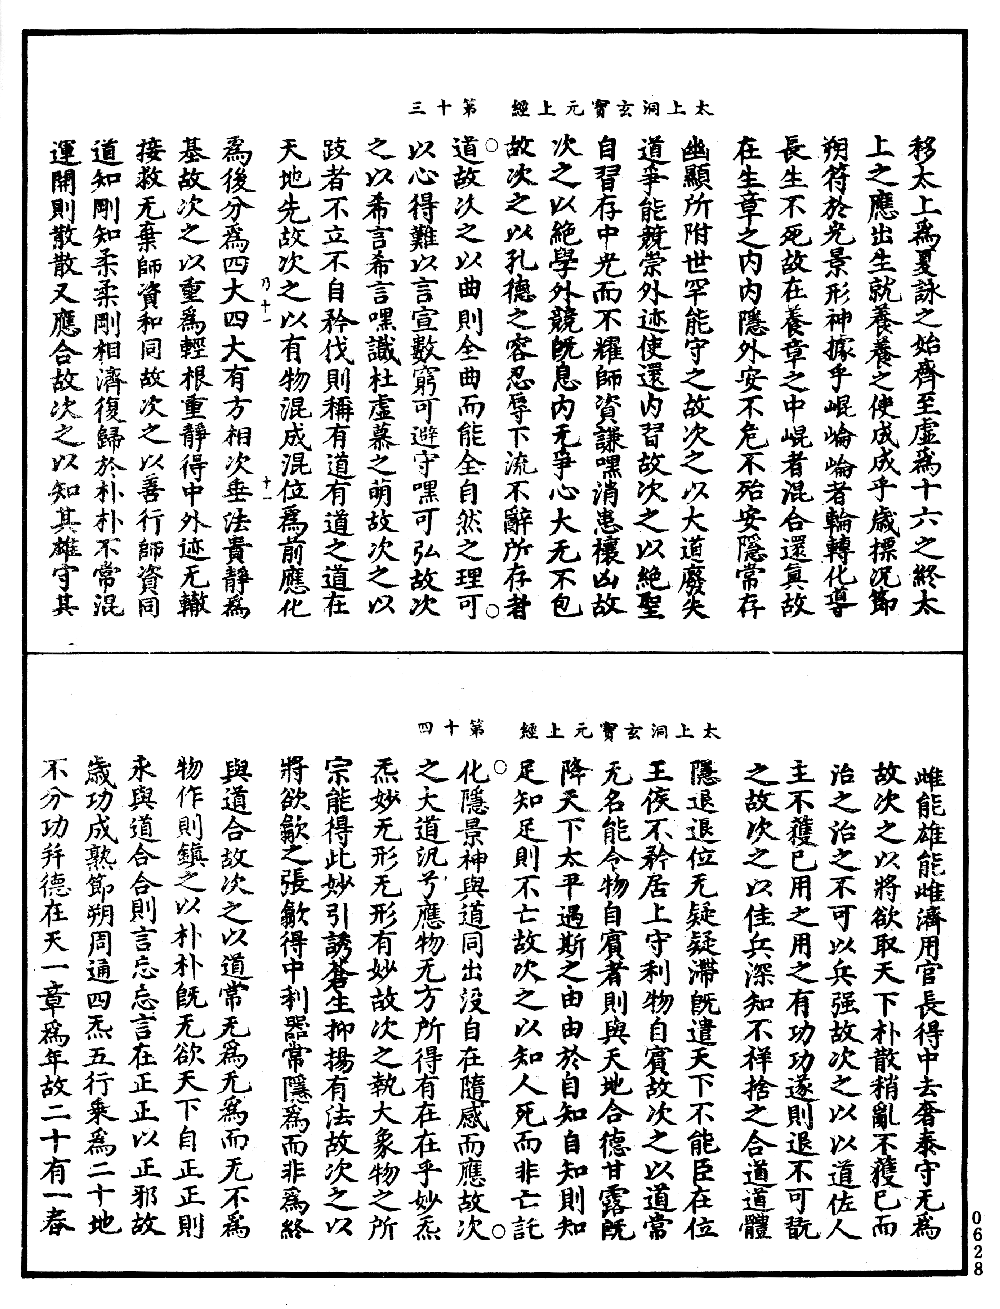 太上洞玄寶元上經　第十三
移太上爲夏詠之始齊至虛爲十六之終太
上之應出生就養養之使成成乎歲標況節
朔符於光景形神據乎崐崘崘者輪轉化導
長生不死故在養章之中崐者混合還真故
在生章之內內隱外安不危不殆安隱常存
幽顯所附世罕能守之故次之以大道廢失
道爭能競崇外迹使還內習故次之以絶聖
自習存中光而不耀師資謙嘿消患禳凶故
次之以絶學外競旣息內无爭心大无不包
故次之以孔德之容忍辱下流不辭所存者
道故次之以曲則全曲而能全自然之理可
以心得難以言宣數窮可避守嘿可弘故次
之以希言希言嘿識杜虛慕之萌故次之以
跂者不立不自矜伐則稱有道有道之道在
天地先故次之以有物混成混位爲前應化
乃十一　十一
爲後分爲四大四大有方相次垂法貴靜爲
基故次之以重爲輕根重靜得中外迹无轍
接救无棄師資和同故次之以善行師資同
道知剛知柔柔剛相濟復歸於朴朴不常混
運開則散散又應合故次之以知其雄守其
太上洞玄寶元上經　第十四
雌能雄能雌濟用官長得中去奢泰守无爲
故次之以將欲取天下朴散稍亂不獲已而
治之治之不可以兵强故次之以以道佐人
主不獲已用之用之有功功遂則退不可翫
之故次之以佳兵深知不祥捨之合道道體
隱退退位无疑疑滯旣遣天下不能臣在位
王侯不矜居上守利物自賓故次之以道常
无名能令物自賓者則與天地合德甘露旣
降天下太平遇斯之由由於自知自知則知
足知足則不亡故次之以知人死而非亡託
化隱景神與道同出没自在隨感而應故次
之大道汎兮應物无方所得有在在乎妙炁
炁妙无形无形有妙故次之執大象物之所
宗能得此妙引誘蒼生抑揚有法故次之以
將欲歙之張歙得中利器常隱爲而非爲終
與道合故次之以道常无爲无爲而无不爲
物作則鎮之以朴朴旣无欲天下自正正則
永與道合合則言忘忘言在正正以正邪故
歲功成熟節朔周通四炁五行乘爲二十地
不分功并德在天一章爲年故二十有一春
0628